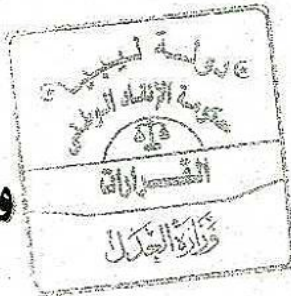 دولة ليبيا
حكومة الإنقاذ الوطني
القرارات
وزارة العدل
و